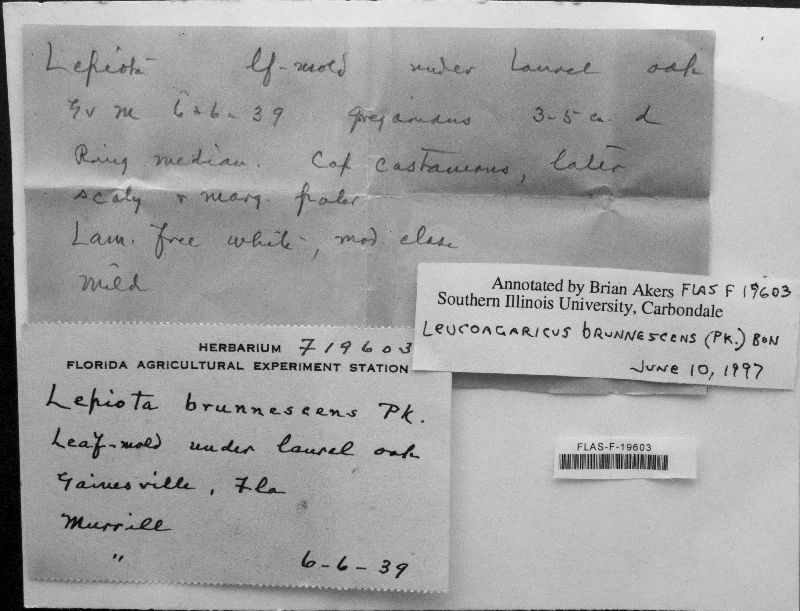 Lepiota lf-mold under laurel oak
Gv M 6-6-39 gregarious 3-5 cm d
Ring median. Cap castaneous, later
scaly & marg. paler
Lam. free white, mod close
Mild
Annotated by Brian Akers FLAS F 19603
Southern Illinois University, Carbondale
LEUCOAGARICUS BRUNNESCENS (PK.) BON
JUNE 10, 1997
HERBARIUM F19603
FLORIDA AGRICULTURAL EXPERIMENT STATION
Lepiota brunnescens Pk.
Leaf-mold under laurel oak
Gainesville, Fla
Murrill
" 6-6-39
FLAS-F-19603